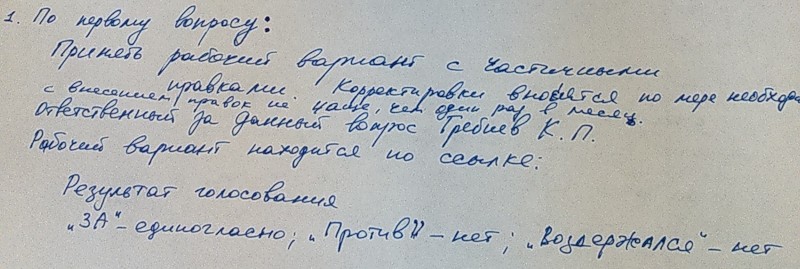 1. По первому вопросу:
Принять рабочий вариант с частичными
правками. Корректировки вносятся по мере необходи
с внесением правок не чаще, чем один раз в месяц.
Ответственный за данный вопрос Требиев К. П.
Рабочий вариант находится по ссылке:
Результат голосования
„ЗА“ – единогласно; „Против“ – нет; „Воздержался“ – нет